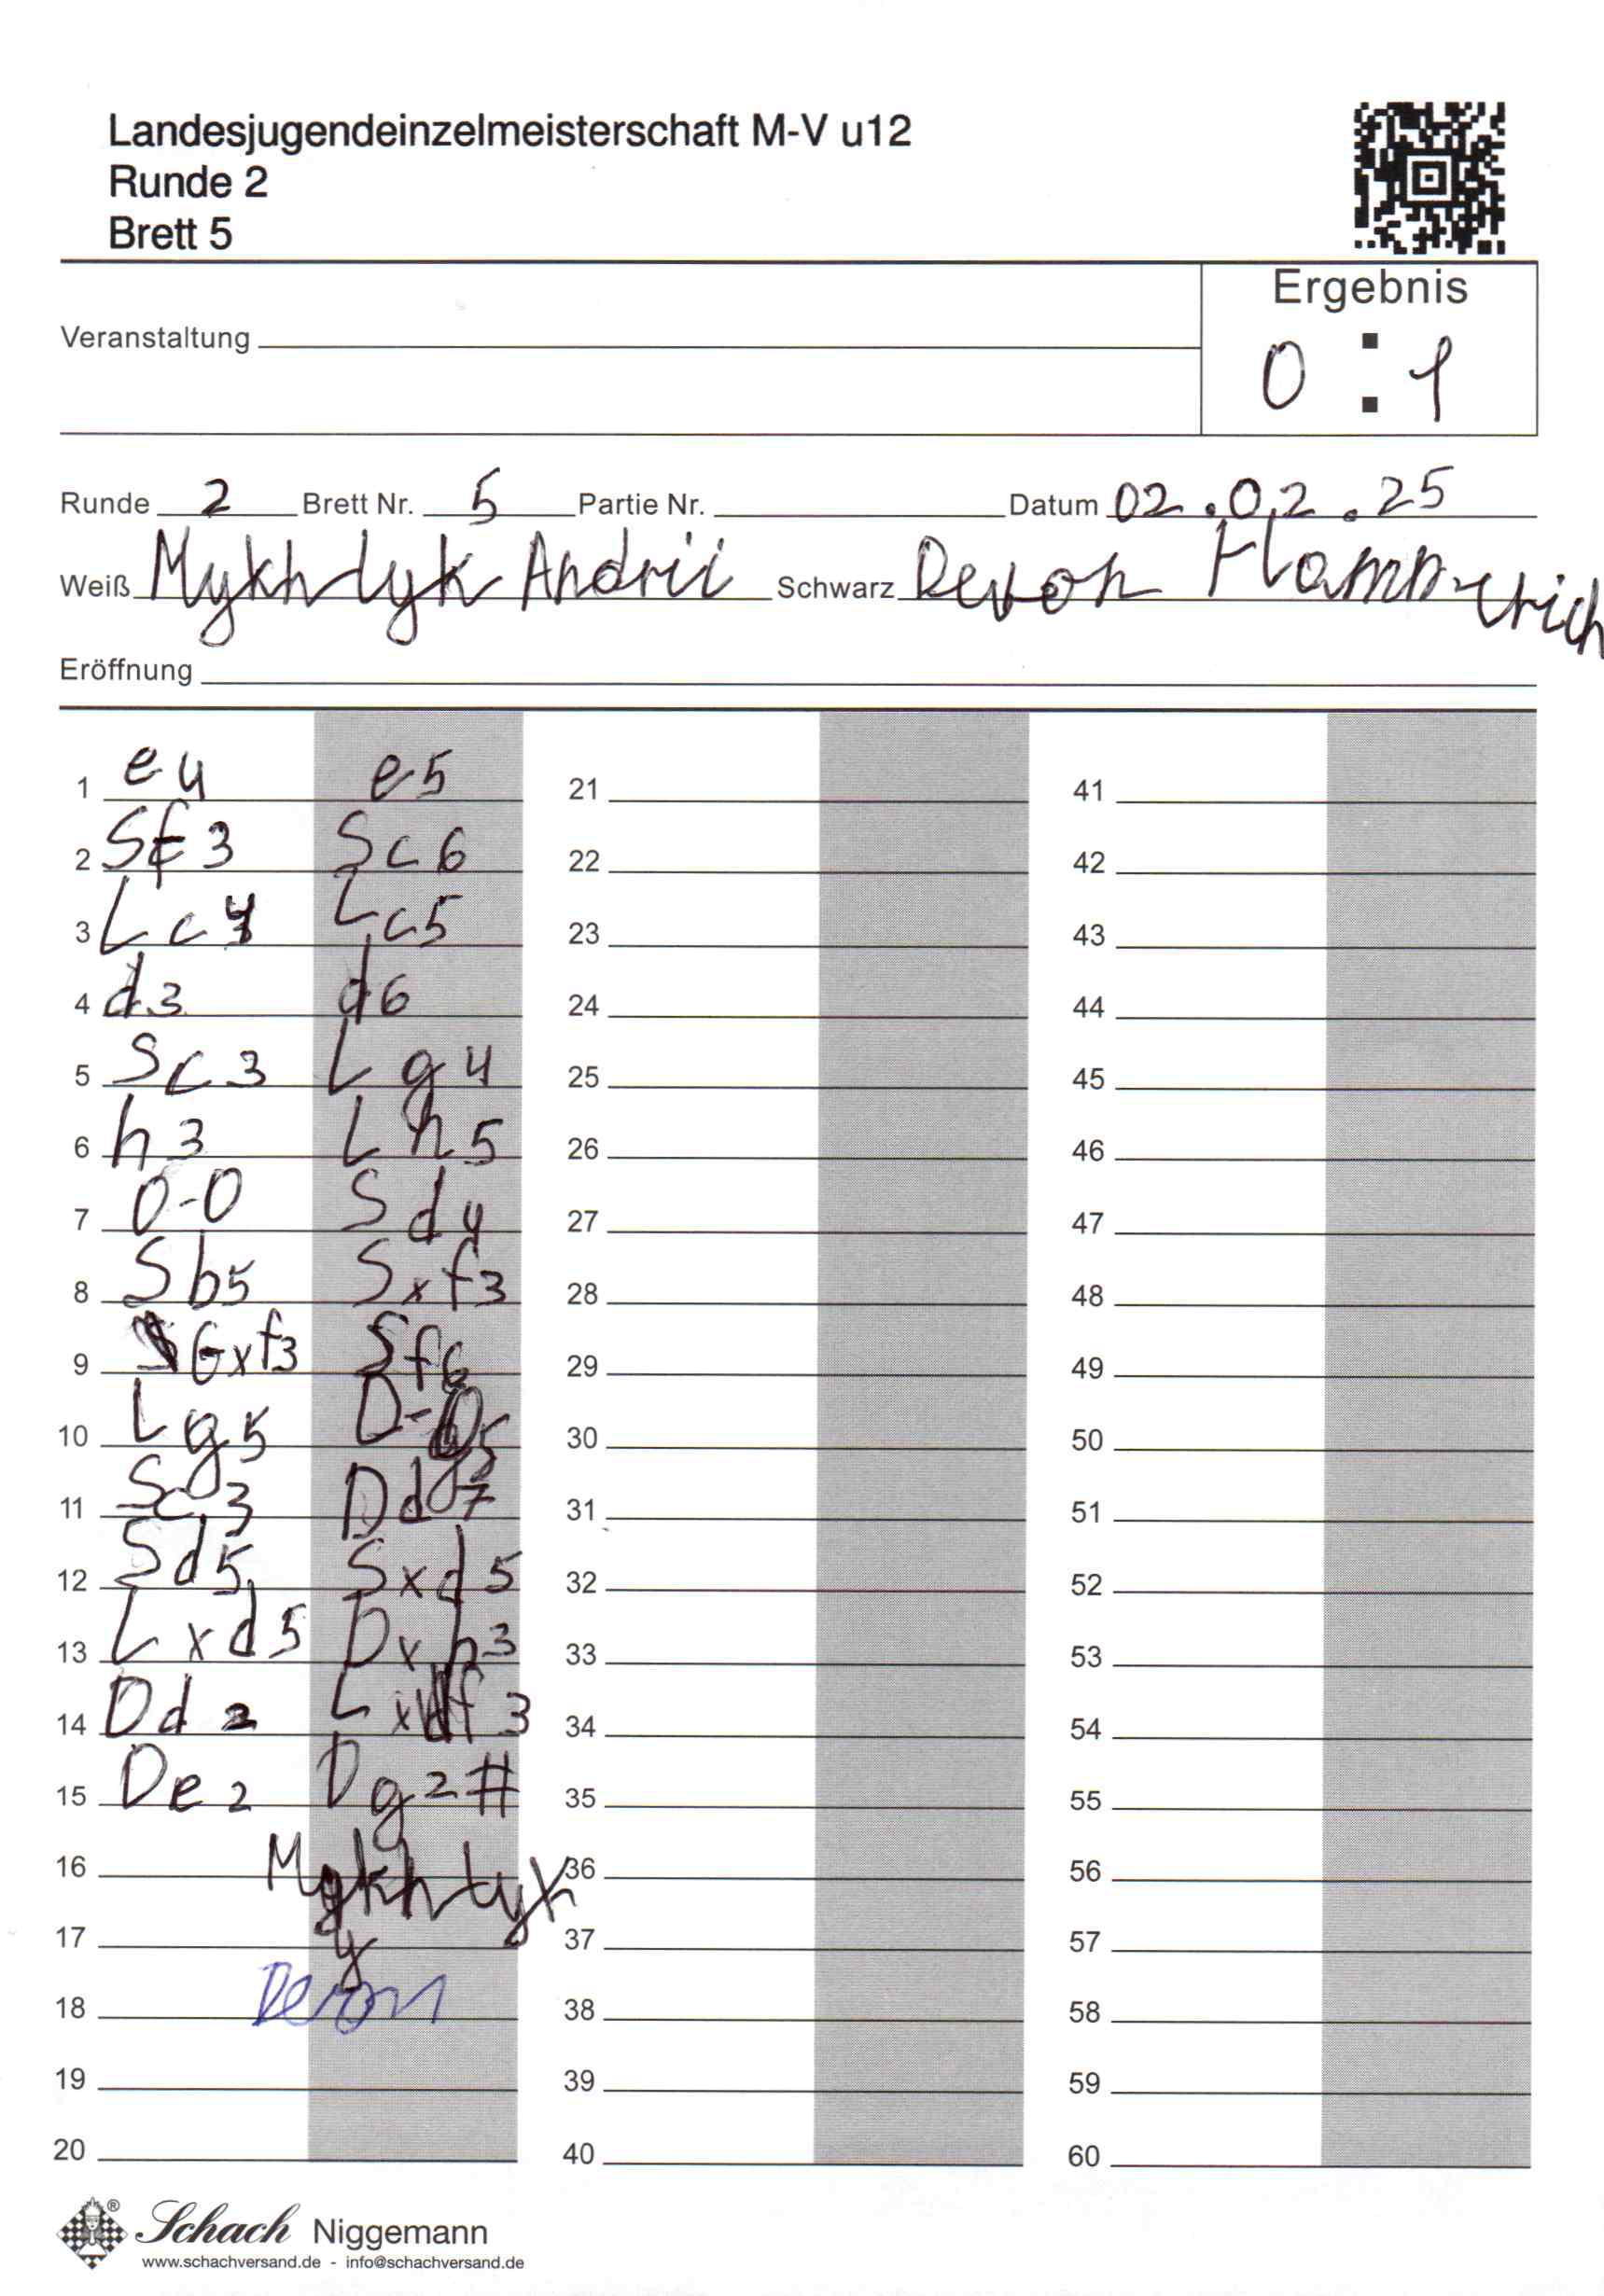 Landesjugendeinzelmeisterschaft M-V u12
Runde 2
Brett 5
Ergebnis
Veranstaltung
0 : 1
Runde 2 Brett Nr. 5 Partie Nr. Datum 02.02.25
Weiß Mykhlyk Andrii Schwarz Devon
Eröffnung
1 e4 e5 21 41
2 Sf3 Sc6 22 42
3 Lc4 Lc5 23 43
4 d3 d6 24 44
5 Sc3 Lg4 25 45
6 h3 Lh5 26 46
7 0-0 Sd4 27 47
8 Sb5 Sxf3 28 48
9 Gxf3 Sf6 29 49
10 Lg5 30 50
11 Sc3 Dd7 31 51
12 Sd5 Sxd5 32 52
13 Lxd5 Dxh3 33 53
14 Dd2 Lxf3 34 54
15 De2 Dg2# 35 55
16 Mykhlyk 36 56
17 37 57
18 Devon 38 58
19 39 59
20 40 60
Schach Niggemann
www.schachversand.de - info@schachversand.de